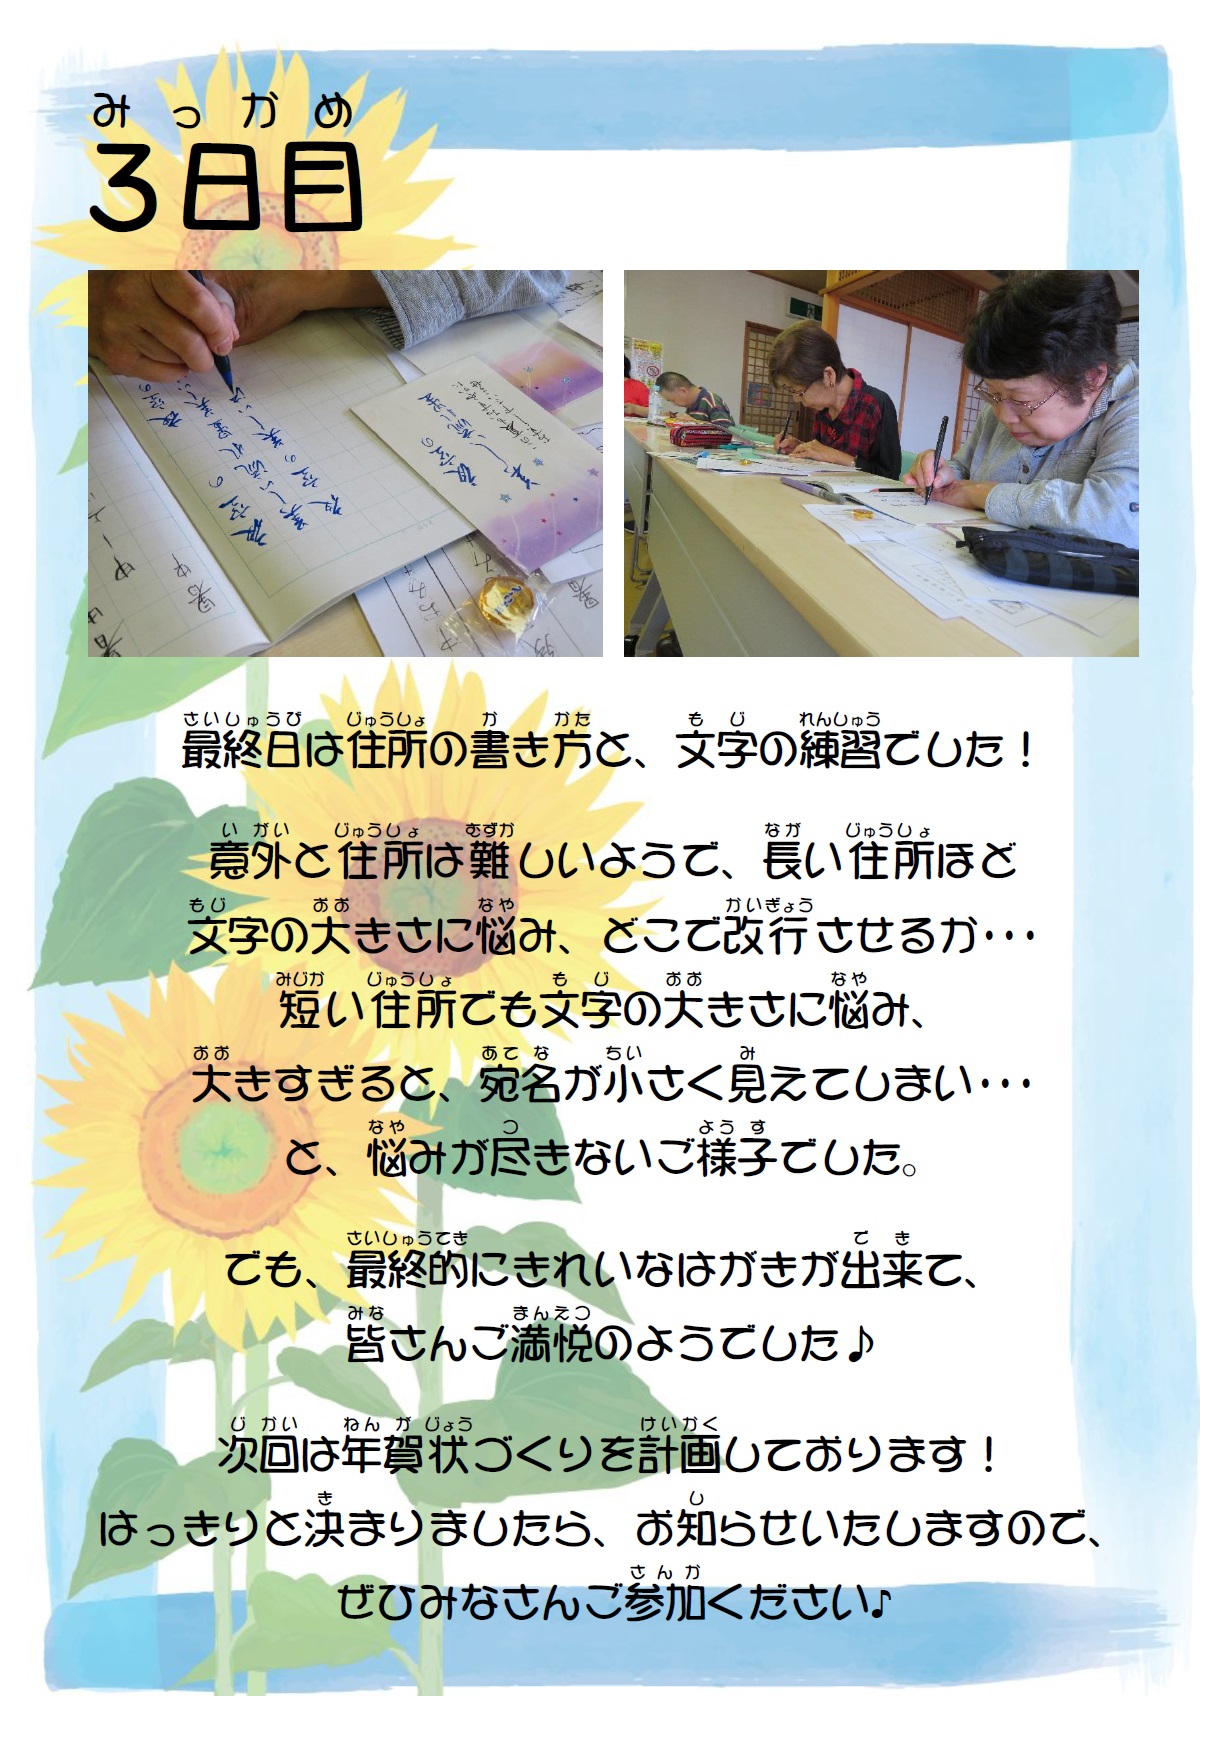 みっかめ
3日目
さいしゅうび じゅうしょ か かた も じ れんしゅう
最終日は住所の書き方と、文字の練習でした！
い がい じゅうしょ むずか なが じゅうしょ
意外と住所は難しいようで、長い住所ほど
もじ おお なや かいぎょう
文字の大きさに悩み、どこで改行させるか･･･
みじか じゅうしょ も じ おお なや
短い住所でも文字の大きさに悩み、
おお あて な ちい み
大きすぎると、宛名が小さく見えてしまい･･･
なや つ よう す
と、悩みが尽きないご様子でした。
さいしゅうてき で き
でも、最終的にきれいなはがきが出来て、
みな まんえつ
皆さんご満悦のようでした♪
じ かい ねん が じょう けいかく
次回は年賀状づくりを計画しております！
き し
はっきりと決まりましたら、お知らせいたしますので、
さん か
ぜひみなさんご参加ください♪